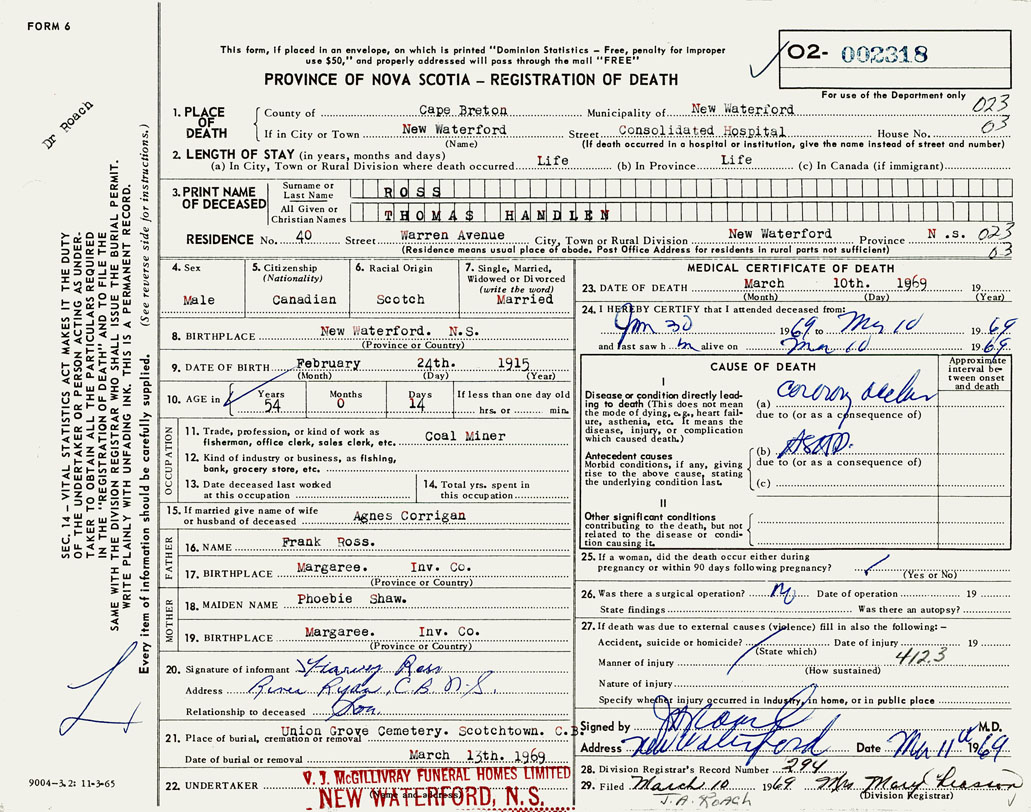 FORM 6
This form, if placed in an envelope, on which is printed "Dominion Statistics – Free, penalty for improper
use $50," and properly addressed will pass through the mail "FREE"
PROVINCE OF NOVA SCOTIA – REGISTRATION OF DEATH
O2- 002318
For use of the Department only
Dr Roach
SEC. 14 – VITAL STATISTICS ACT MAKES IT THE DUTY
OF THE UNDERTAKER OR PERSON ACTING AS UNDER-
TAKER TO OBTAIN ALL THE PARTICULARS REQUIRED
IN THE "REGISTRATION OF DEATH" AND TO FILE THE
SAME WITH THE DIVISION REGISTRAR WHO SHALL ISSUE THE BURIAL PERMIT.
WRITE PLAINLY WITH UNFADING INK. THIS IS A PERMANENT RECORD.
Every item of information should be carefully supplied. (See reverse side for instructions.)
1. PLACE OF DEATH
County of Cape Breton Municipality of New Waterford 023
If in City or Town New Waterford Street Consolidated Hospital House No. 03
(Name) (If death occurred in a hospital or institution, give the name instead of street and number)
2. LENGTH OF STAY (in years, months and days)
(a) In City, Town or Rural Division where death occurred Life (b) In Province Life (c) In Canada (if immigrant)
3. PRINT NAME OF DECEASED
Surname or Last Name ROSS
All Given or Christian Names THOMAS HANDLEN
RESIDENCE No. 40 Street Warren Avenue City, Town or Rural Division New Waterford Province N.S. 023
(Residence means usual place of abode. Post Office Address for residents in rural parts not sufficient) 03
4. Sex
Male
5. Citizenship
(Nationality)
Canadian
6. Racial Origin
Scotch
7. Single, Married,
Widowed or Divorced
(write the word)
Married
8. BIRTHPLACE New Waterford. N.S.
(Province or Country)
9. DATE OF BIRTH February 24th. 1915
(Month) (Day) (Year)
10. AGE in Years Months Days If less than one day old
54 0 14 hrs. or min.
OCCUPATION
11. Trade, profession, or kind of work as
fisherman, office clerk, sales clerk, etc. Coal Miner
12. Kind of industry or business, as fishing,
bank, grocery store, etc.
13. Date deceased last worked
at this occupation
14. Total yrs. spent in
this occupation
15. If married give name of wife
or husband of deceased Agnes Corrigan
FATHER
16. NAME Frank Ross.
17. BIRTHPLACE Margaree. Inv. Co.
(Province or Country)
MOTHER
18. MAIDEN NAME Phoebie Shaw.
19. BIRTHPLACE Margaree. Inv. Co.
(Province or Country)
20. Signature of informant Harvey Ross
Address River Ryan, C.B. N.S.
Relationship to deceased Son.
21. Place of burial, cremation or removal Union Grove Cemetery. Scotchtown. C.B.
Date of burial or removal March 13th. 1969
22. UNDERTAKER V. J. McGILLIVRAY FUNERAL HOMES LIMITED
(Name and address)
NEW WATERFORD, N.S.
9004-3.2: 11-3-65
MEDICAL CERTIFICATE OF DEATH
23. DATE OF DEATH March 10th. 1969 19
(Month) (Day) (Year)
24. I HEREBY CERTIFY that I attended deceased from:
Jan 30 1969 to Mar 10 1969
and last saw h im alive on Mar 10 1969.
CAUSE OF DEATH
Approximate interval between onset and death
I
Disease or condition directly lead-
ing to death (This does not mean
the mode of dying, e.g., heart fail-
ure, asthenia, etc. It means the
disease, injury, or complication
which caused death.)
(a) coronary
due to (or as a consequence of)
Antecedent causes
Morbid conditions, if any, giving
rise to the above cause, stating
the underlying condition last.
(b) ASHD.
due to (or as a consequence of)
(c)
II
Other significant conditions
contributing to the death, but not
related to the disease or condi-
tion causing it.
25. If a woman, did the death occur either during
pregnancy or within 90 days following pregnancy?
(Yes or No)
26. Was there a surgical operation? No Date of operation 19
State findings Was there an autopsy?
27. If death was due to external causes (violence) fill in also the following: –
Accident, suicide or homicide? Date of injury 19
(State which) 412.3
Manner of injury
(How sustained)
Nature of injury
Specify whether injury occurred in industry, in home, or in public place
Signed by J A Roach M.D.
Address New Waterford Date Mar 11th 1969
28. Division Registrar's Record Number 294
29. Filed March 10 1969 Mrs Mary
(Division Registrar)
J. A. ROACH